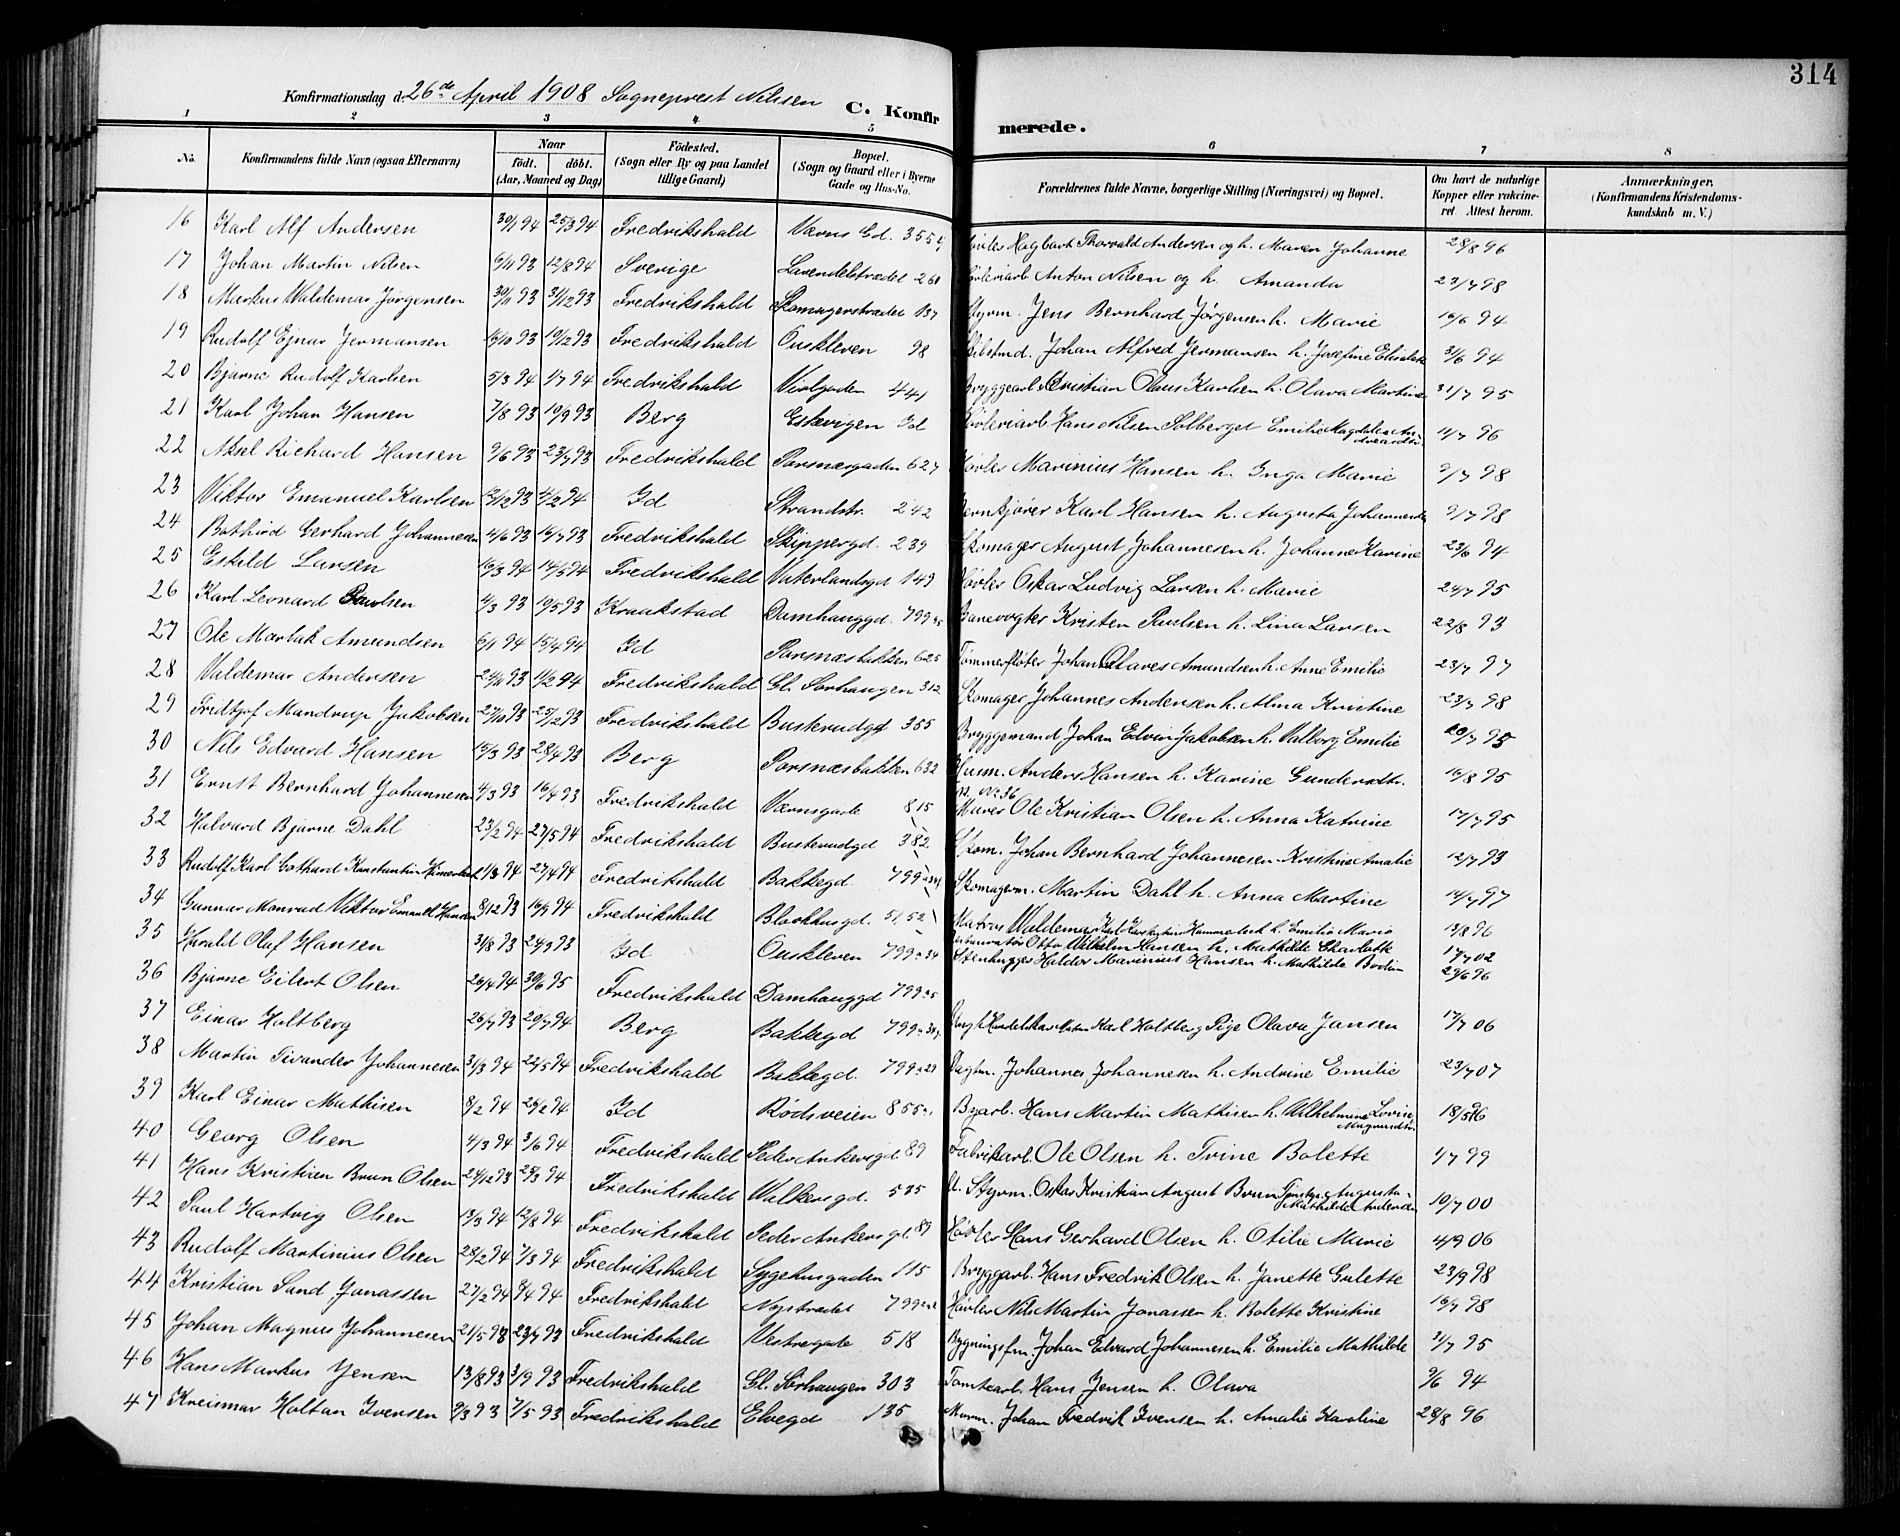 314
Konfirmationsdag d. 26de April 1908 Sogneprest Nilssen
C. Konfirmerede.
1 2 3 4 5 6 7 8
No. Konfirmandens fulde Navn (ogsaa Efternavn) Naar født. døbt. (Aar, Maaned og Dag) Fødested. (Sogn eller By og paa Landet tillige Gaard) Bopæl. (Sogn og Gaard eller i Byerne Gade og Hus-No. Forældrenes fulde Navne, borgerlige Stilling (Næringsvei) og Bopæl. Om havt de naturlige Kopper eller vaccineret. Attest herom. Anmærkninger. (Konfirmandens Kristendomskundskab m. V.)
16 Karl Alf Andersen 30/1 94 25/3 94 Fredrikshald Værns Gd. 355 Høvler Hagbart Thorvald Andersen og h. Maren Johanne 28/8 96
17 Johan Martin Nilsen 6/11 93 12/8 94 Sverige Lavendelstrædet 260 Anton Nilsen og h. Amanda 23/7 98
18 Markus Waldemar Jørgensen 30/11 93 31/12 93 Fredrikshald Skomagerstrædet 137 Styrm. Jens Bernhard Jørgensen h. Marie 16/6 94
19 Rudolf Ejnar Jermansen 15/10 93 10/12 93 Fredrikshald Ouskleven 98 Johan Alfred Jermansen h. Josefine 31/6 94
20 Bjarne Rudolf Karlsen 5/3 94 1/7 94 Fredrikshald Violgaden 441 Bryggearb. Kristian Olaus Karlsen h. Olava Martine 31/7 95
21 Karl Johan Hansen 7/8 93 10/9 93 Berg Eskevigen Id Høvleriarb. Hans Nilsen Solberget Emilie Magdalena Andreasdtr. 11/7 96
22 Aksel Richard Hansen 9/6 93 23/7 93 Fredrikshald Porsnæsgaden 627 Høvler Marinius Hansen h. Inga Marie 9/7 98
23 Viktor Emanuel Karlsen 12/12 93 4/2 94 Id Strandstr. 242 Karl Hansen h. Augusta 9/7 98
24 Bothiod Gerhard Johannesen 11/6 93 16/7 93 Fredrikshald Skippergd. 239 Skomager August Johannesen h. Johanne Karine 23/6 94
25 Eskild Larsen 16/3 94 14/5 94 Fredrikshald Vaterlandsgd 149 Høvler Oskar Ludvig Larsen h. Marie 24/7 95
26 Karl Leonard Paulsen 4/3 93 19/5 93 Kraakstad Damhauggd. 799 Banevogter Kristen Paulsen h. Lina Larsen 22/8 93
27 Ole Amundsen 6/1 94 15/4 94 Id Porsnæsbakken 625 Tømmerfløter Johan Olaves Amundsen h. Anne Emilie 23/7 97
28 Valdemar Andersen 24/11 93 11/2 94 Fredrikshald Gl. Sørhaugen 312 Skomager Johannes Andersen h. Alma Kristine 23/7 98
29 Fridtjof Mandrup Jakobsen 27/10 93 25/12 93 Fredrikshald Busterudgd 355 Bryggemand Johan Edvin Jakobsen h. Valborg Emilie 20/7 95
30 Nils Edvard Hansen 15/3 93 28/4 93 Berg Porsnæsbakken 632 Husm. Anders Hansen h. Karine Gundersdtr. 16/8 95
31 Ernst Bernhard Johannesen 4/3 93 16/4 93 Fredrikshald Værnsgade 815 No. 36 Murer Ole Kristian Olsen h. Anna Katrine 17/7 95
32 Halvard Bjarne Dahl 23/2 94 27/5 94 Fredrikshald Busterudgd 382 Skom. Johan Bernhard Johannesen Kristine Amalie 12/7 93
33 Rudolf Karl Gothard Konstantin 21/3 94 27/4 94 Fredrikshald Bakkegd. 799 Skomagerm. Martin Dahl h. Anna Martine 14/7 97
34 Gunnar Monrad Viktor Emanuel Hansen 8/12 93 16/4 94 Fredrikshald Blokhusgd. 51,52 Matros Waldemar Karl h. Emilie Marie 13/8 96
Otto Wilhelm Hansen h. Mathilde Charlotte 17/7 02
35 Harald Olaf Hansen 31/8 93 24/9 93 Id Ouskleven 799 Stenhugger Haldor Marinius Hansen h. Mathilde 29/6 96
36 Bjarne Eilert Olsen 26/4 94 30/6 95 Fredrikshald Damhauggd 799
37 Einar Holtberg 26/7 93 29/7 94 Berg Bakkegd 799 Karl Holtberg Pige Olava Jansen 17/7 06
38 Martin Tivander Johannesen 31/3 94 22/5 94 Fredrikshald Bakkegd. 799 Dagm. Johannes Johannesen h. Andrine Emilie 23/7 07
39 Karl Einar Mathisen 8/2 94 26/2 94 Id Rødsveien 855 Byarb. Hans Martin Mathisen h. Vilhelmine Lovise Magnusdtr. 18/5 96
40 Georg Olsen 4/3 94 3/6 94 Fredrikshald Peder Ankersgd 89 Fabrikarb. Ole Olsen h. Trine Bolette 4/7 99
41 Hans Kristian Brun Olsen 24/12 93 25/3 94 Fredrikshald Walkersgd. 535 U. Styrm. Oskar Kristian August Brun Tjenstp. Augusta Mathilde Andersen 10/7 00
42 Paul Hartvig Olsen 13/3 94 12/8 94 Fredrikshald Peder Ankersgd. 89 Høvler Hans Gerhard Olsen h. Otilie Marie 4/9 06
43 Rudolf Martinius Olsen 28/2 94 7/3 94 Fredrikshald Sygehusgaden 115 Bryggarb. Hans Fredrik Olsen h. Janette Gulette 23/9 98
44 Kristian Sand Jonassen 27/2 94 8/4 94 Fredrikshald Nystrædet 799 Høvler Nils Martin Jonassen h. Bolette Kristine 16/7 98
45 Johan Magnus Johannesen 21/5 93 23/7 93 Fredrikshald Vestregade 518 Bygningsfm. Johan Edvard Johannesen h. Emilie Mathilde 31/7 95
46 Hans Markus Jensen 13/8 93 3/9 93 Fredrikshald Gl. Sørhaugen 303 Tomtearb. Hans Jensen h. Olava 9/6 94
47 Kreismar Holtan Iversen 9/3 93 7/5 93 Fredrikshald Elvegd 135 Murm. Johan Fredrik Iversen h. Amalie Karoline 28/8 96